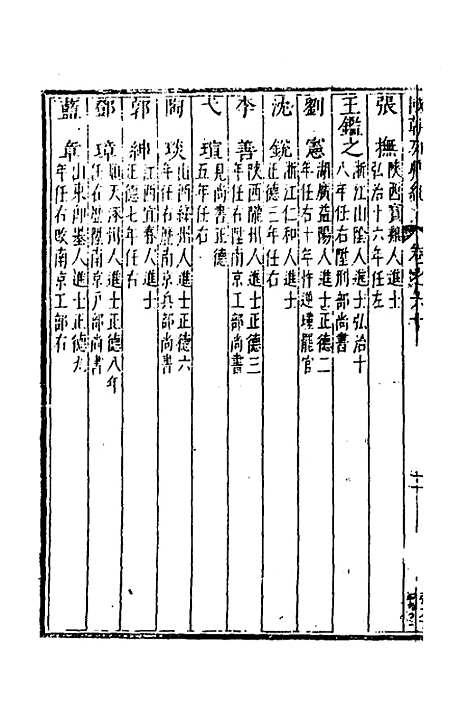 張撫 陝西寶雞人進士
弘治十六年任左
王鑑之 浙江山陰人進士弘治十
八年任右陞刑部尚書
劉憲 湖廣益陽人進士正德二
年任右十年忤逆瑾罷官
沈銳 浙江仁和人進士
正德三年任右
李善 陝西隴州人進士正德三
年任右陞南京工部尚書
弋瑄 見尚書正德
五年任右
陶琰 山西絳州人進士正德六
年任右歷南京兵部尚書
郭紳 江西宜春人進士
正德七年任右
鄧璋 順天涿州人進士正德八年
任右歷陞南京戶部尚書
藍章 山東即墨人進士正德九
年任右改南京工部右